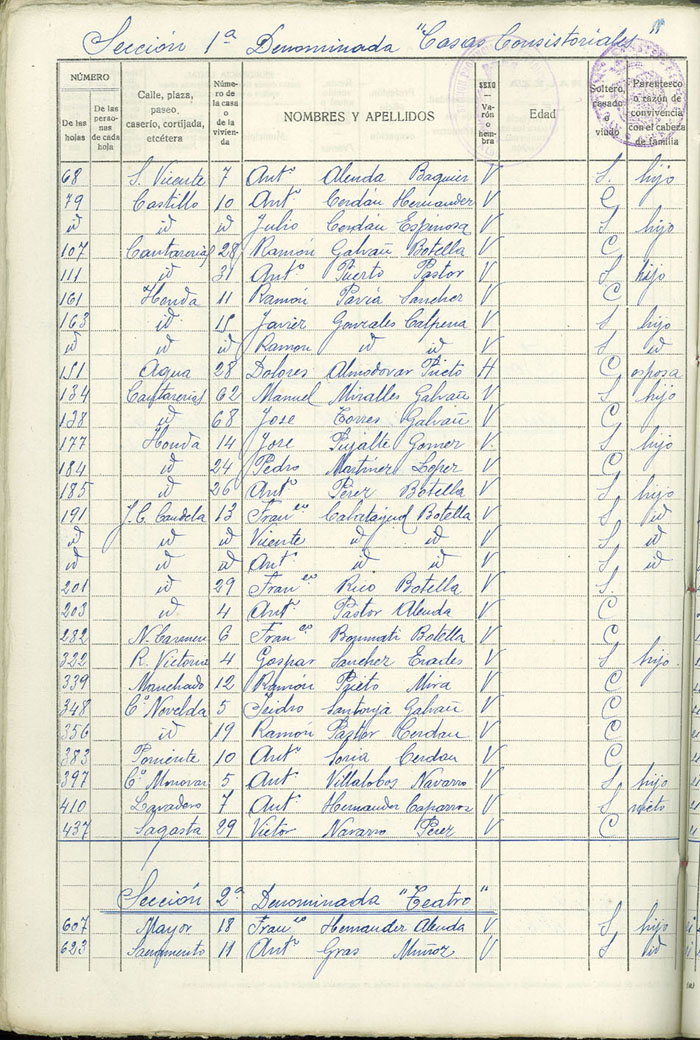 Sección 1ª Denominada "Casas Consistoriales"
NÚMERO
De las hojas
De las personas de cada hoja
Calle, plaza, paseo, caserío, cortijada, etcétera
Número de la casa o de la vivienda
NOMBRES Y APELLIDOS
SEXO — Varón o hembra
Edad
Soltero, casado o viudo
Parentesco o razón de convivencia con el cabeza de familia
68 S. Vicente 7 Antº Alenda Baquier V S. hijo
79 Castillo 10 Antº Cerdán Hernandez V C
id id id Julio Cerdán Espinosa V S hijo
107 Cantarerias 28 Ramón Galvañ Botella V C
111 id 31 Antº Puerto Pastor V S hijo
161 Honda 11 Ramón Pavia Sanchez V C
163 id 15 Javier Gonzales Calpena V S hijo
id id id Ramon id id V S id
151 Agua 28 Dolores Almodovar Prieto H C esposa
134 Cantarerias 62 Manuel Miralles Galvañ V S hijo
138 id 68 Jose Torres Galvañ V C
177 Honda 14 Jose Pujalte Gomez V. S hijo
184 id 24 Pedro Martinez López V C
185 id 26 Antº Perez Botella V S hijo
191 J. C. Candela 13 Franco Calatayud Botella V S id
id id id Vicente id id V S id
id id id Antº id id V S id
201 id 29 Franco Rico Botella V S.
203 id 4 Antº Pastor Alenda V C
282 N. Carmen 6 Franco Bonmati Botella V C
322 R. Victoria 4 Gaspar Sanchez Erades V S hijo.
339 Manchado 12 Ramón Prieto Mira V C
348 Cº Novelda 5 Isidro Santonja Galvañ V C
356 id 19 Ramón Pastor Cerdan V C
383 Poniente 10 Antº Soria Cerdan V C
397 Cº Monovar 5 Antº Villalobos Navarro V S hijo
410 Lavadero 7 Antº Hernandez Caparros V S nieto
437 Sagasta 29 Victor Navarro Perez V C
Sección 2ª Denominada "Teatro"
607 Mayor 18 Franco Hernandez Alenda V S hijo
623 Sacramento 11 Antº Gras Muñoz V S id